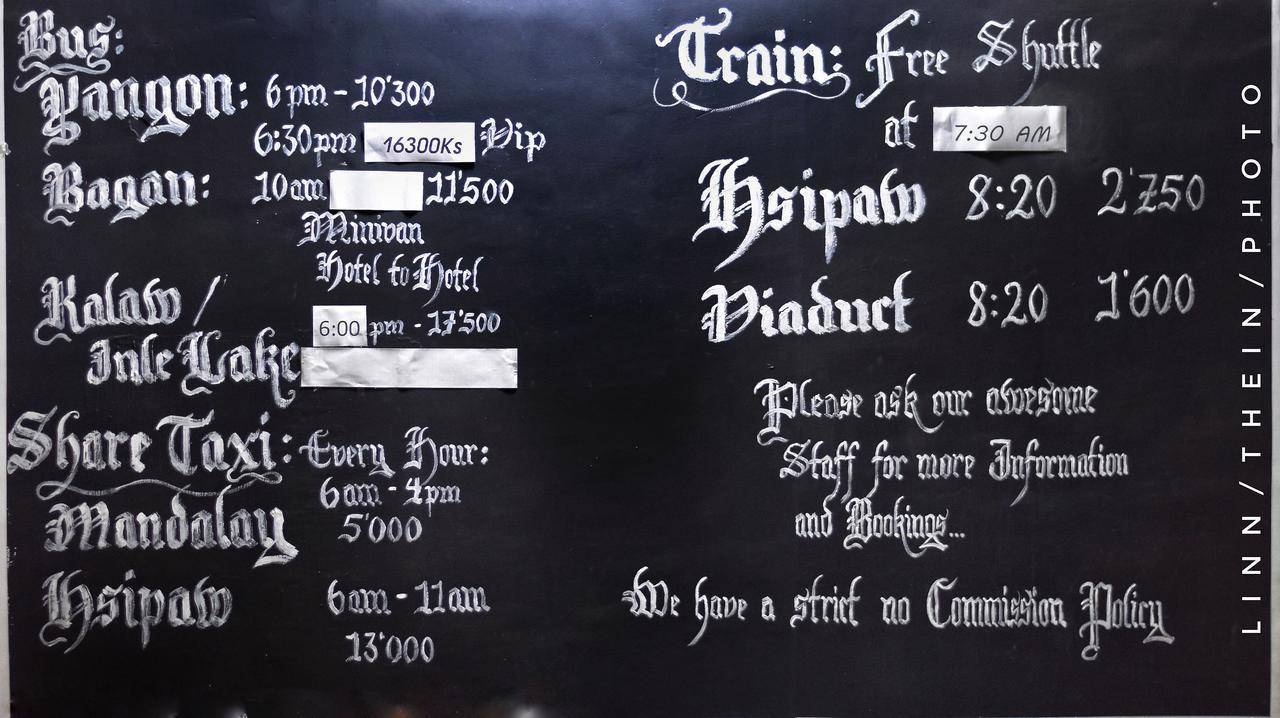 Bus:
Yangon: 6pm - 10'300
6:30pm 16300Ks Vip
Bagan: 10am 11'500
Minivan
Hotel to Hotel
Kalaw /
6:00 pm - 17'500
Inle Lake
Share Taxi: Every Hour:
6am - 4pm
Mandalay 5'000
Hsipaw 6am - 11am
13'000
Train: Free Shuttle
at 7:30 AM
Hsipaw 8:20 2'750
Viaduct 8:20 1'600
Please ask our awesome
Staff for more Information
and Bookings...
We have a strict no Commission Policy
LINN/THEIN/PHOTO